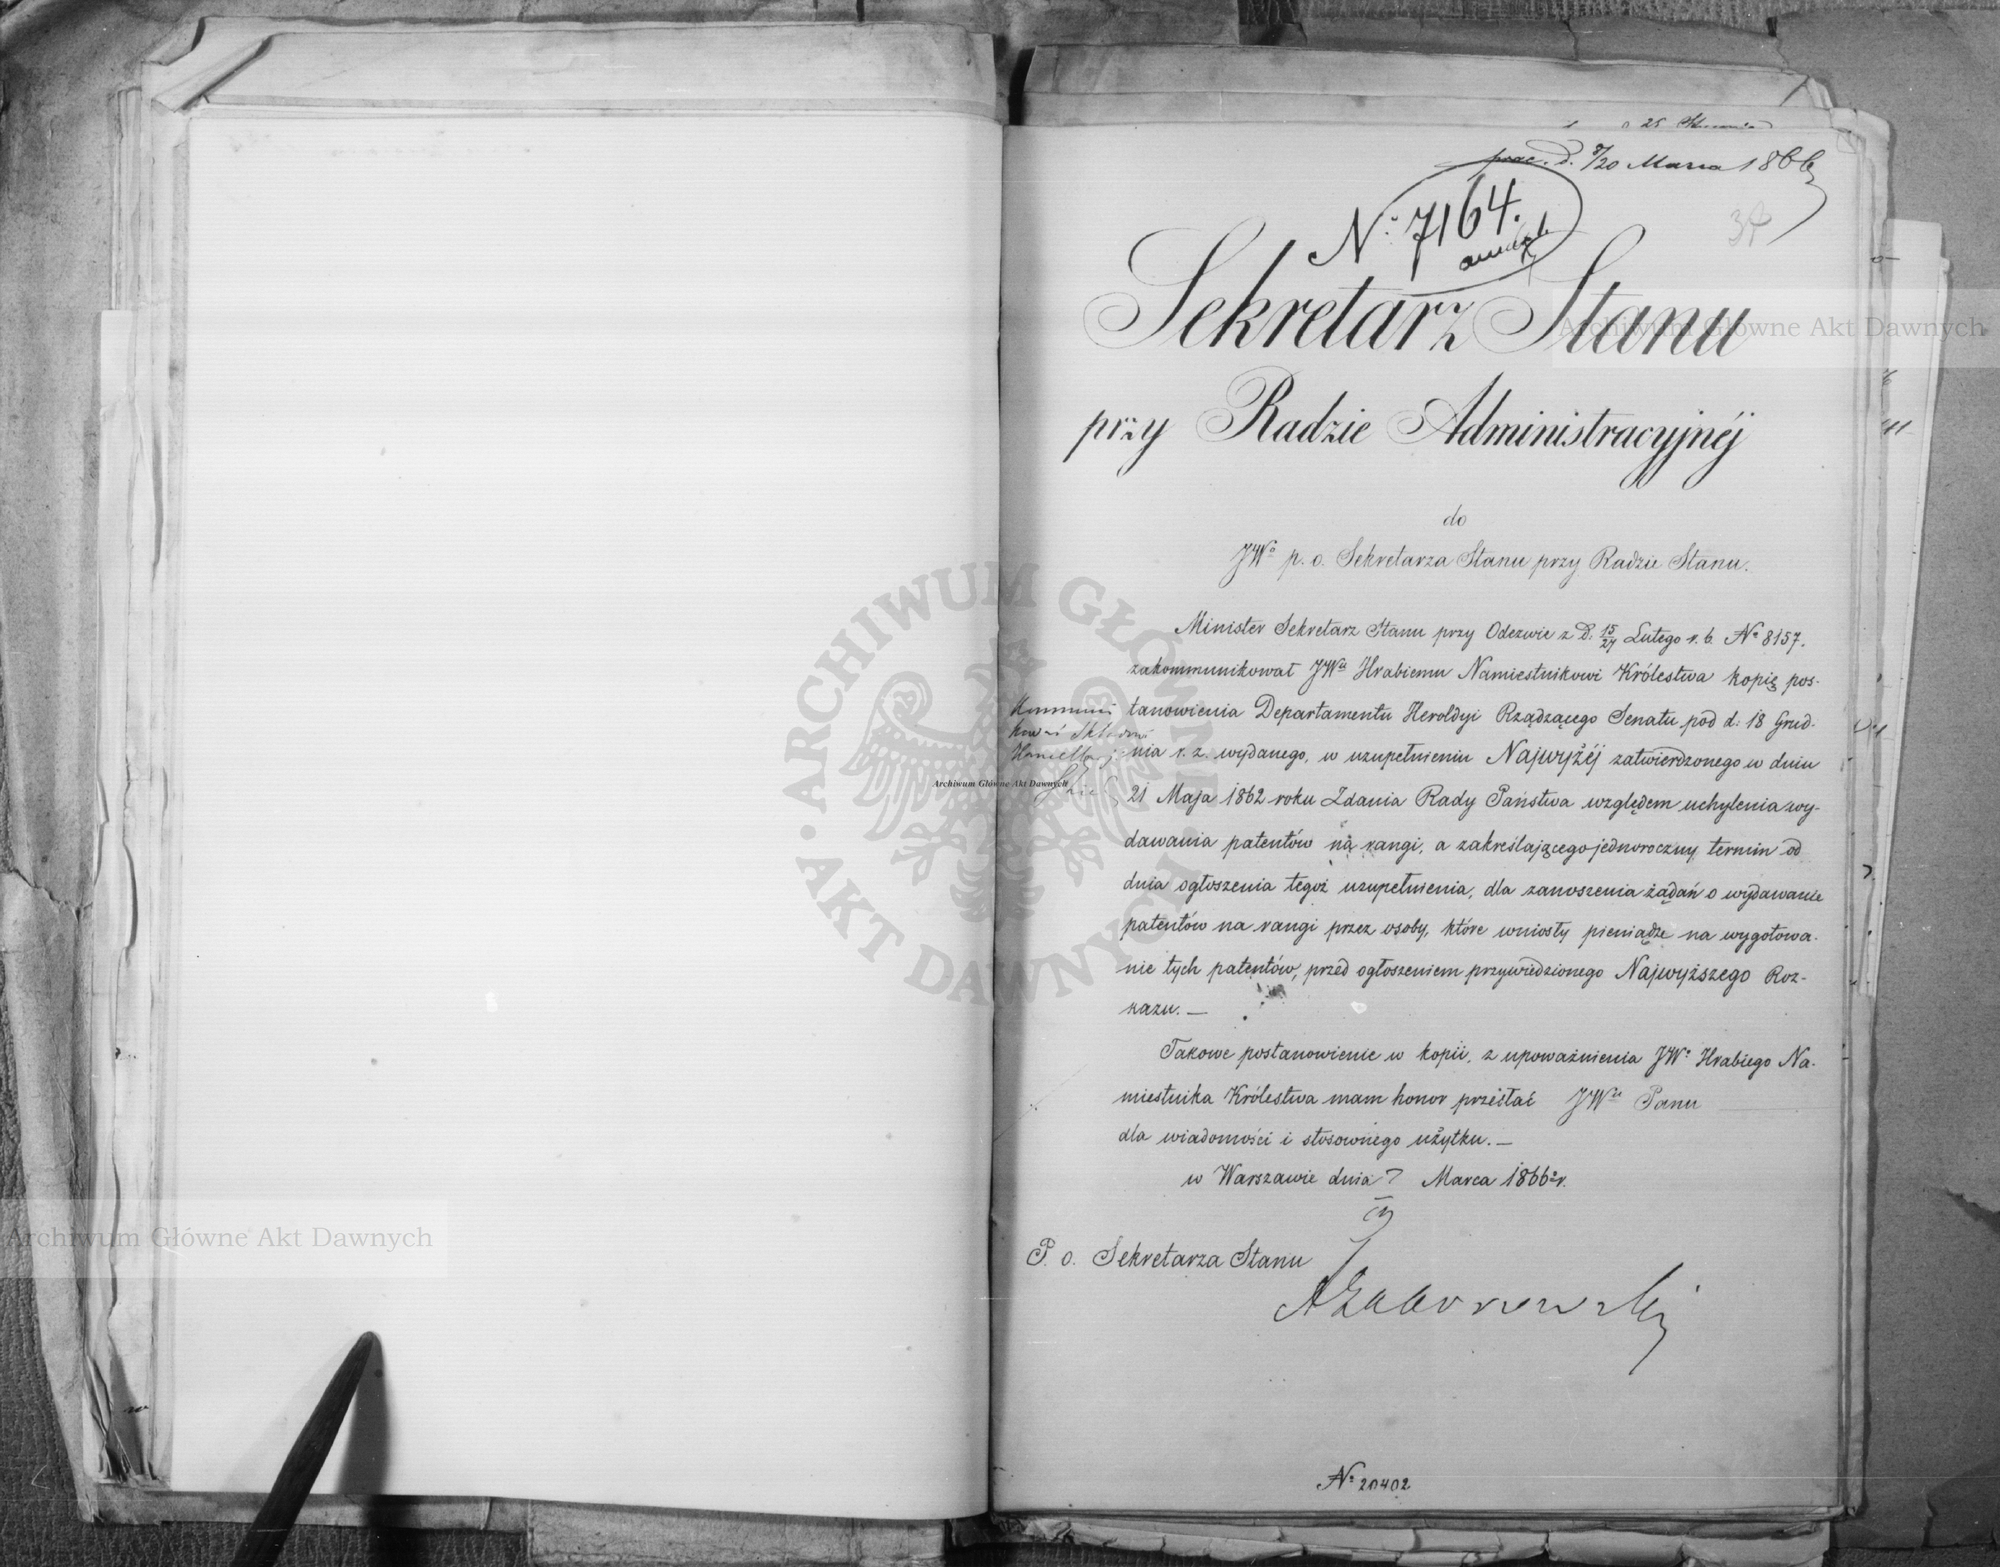 25
d. 8/20 Marca 1866
37
N: 7164.
Sekretarz Stanu
przy Radzie Administracyjnéj
do
JWo p. o. Sekretarza Stanu przy Radzie Stanu.
Minister Sekretarz Stanu przy Odezwie z D. 15/27 Lutego r. b. No 8157.
zakommunikował JWu Hrabiemu Namiestnikowi Królestwa kopię pos-
tanowienia Departamentu Heroldyi Rządzącego Senatu pod d: 18 Grud-
nia r. z. wydanego, w uzupełnieniu Najwyżéj zatwierdzonego w dniu
21 Maja 1862 roku Zdania Rady Państwa względem uchylenia wy-
dawania patentów na rangi, a zakreślającego jednoroczny termin od
dnia ogłoszenia tegoż uzupełnienia, dla zanoszenia żądań o wydawanie
patentów na rangi przez osoby, które wniosły pieniądze na wygotowa-
nie tych patentów, przed ogłoszeniem przywiedzionego Najwyższego Roz-
kazu. —
Takowe postanowienie w kopii, z upoważnienia JWo Hrabiego Na-
miestnika Królestwa mam honor przesłać JWu Panu
dla wiadomości i stosownego użytku. —
w Warszawie dnia 7 Marca 1866o r.
P. o. Sekretarza Stanu
No 20402
Archiwum Główne Akt Dawnych
Archiwum Główne Akt Dawnych
Archiwum Główne Akt Dawnych
ARCHIWUM GŁÓWNE AKT DAWNYCH